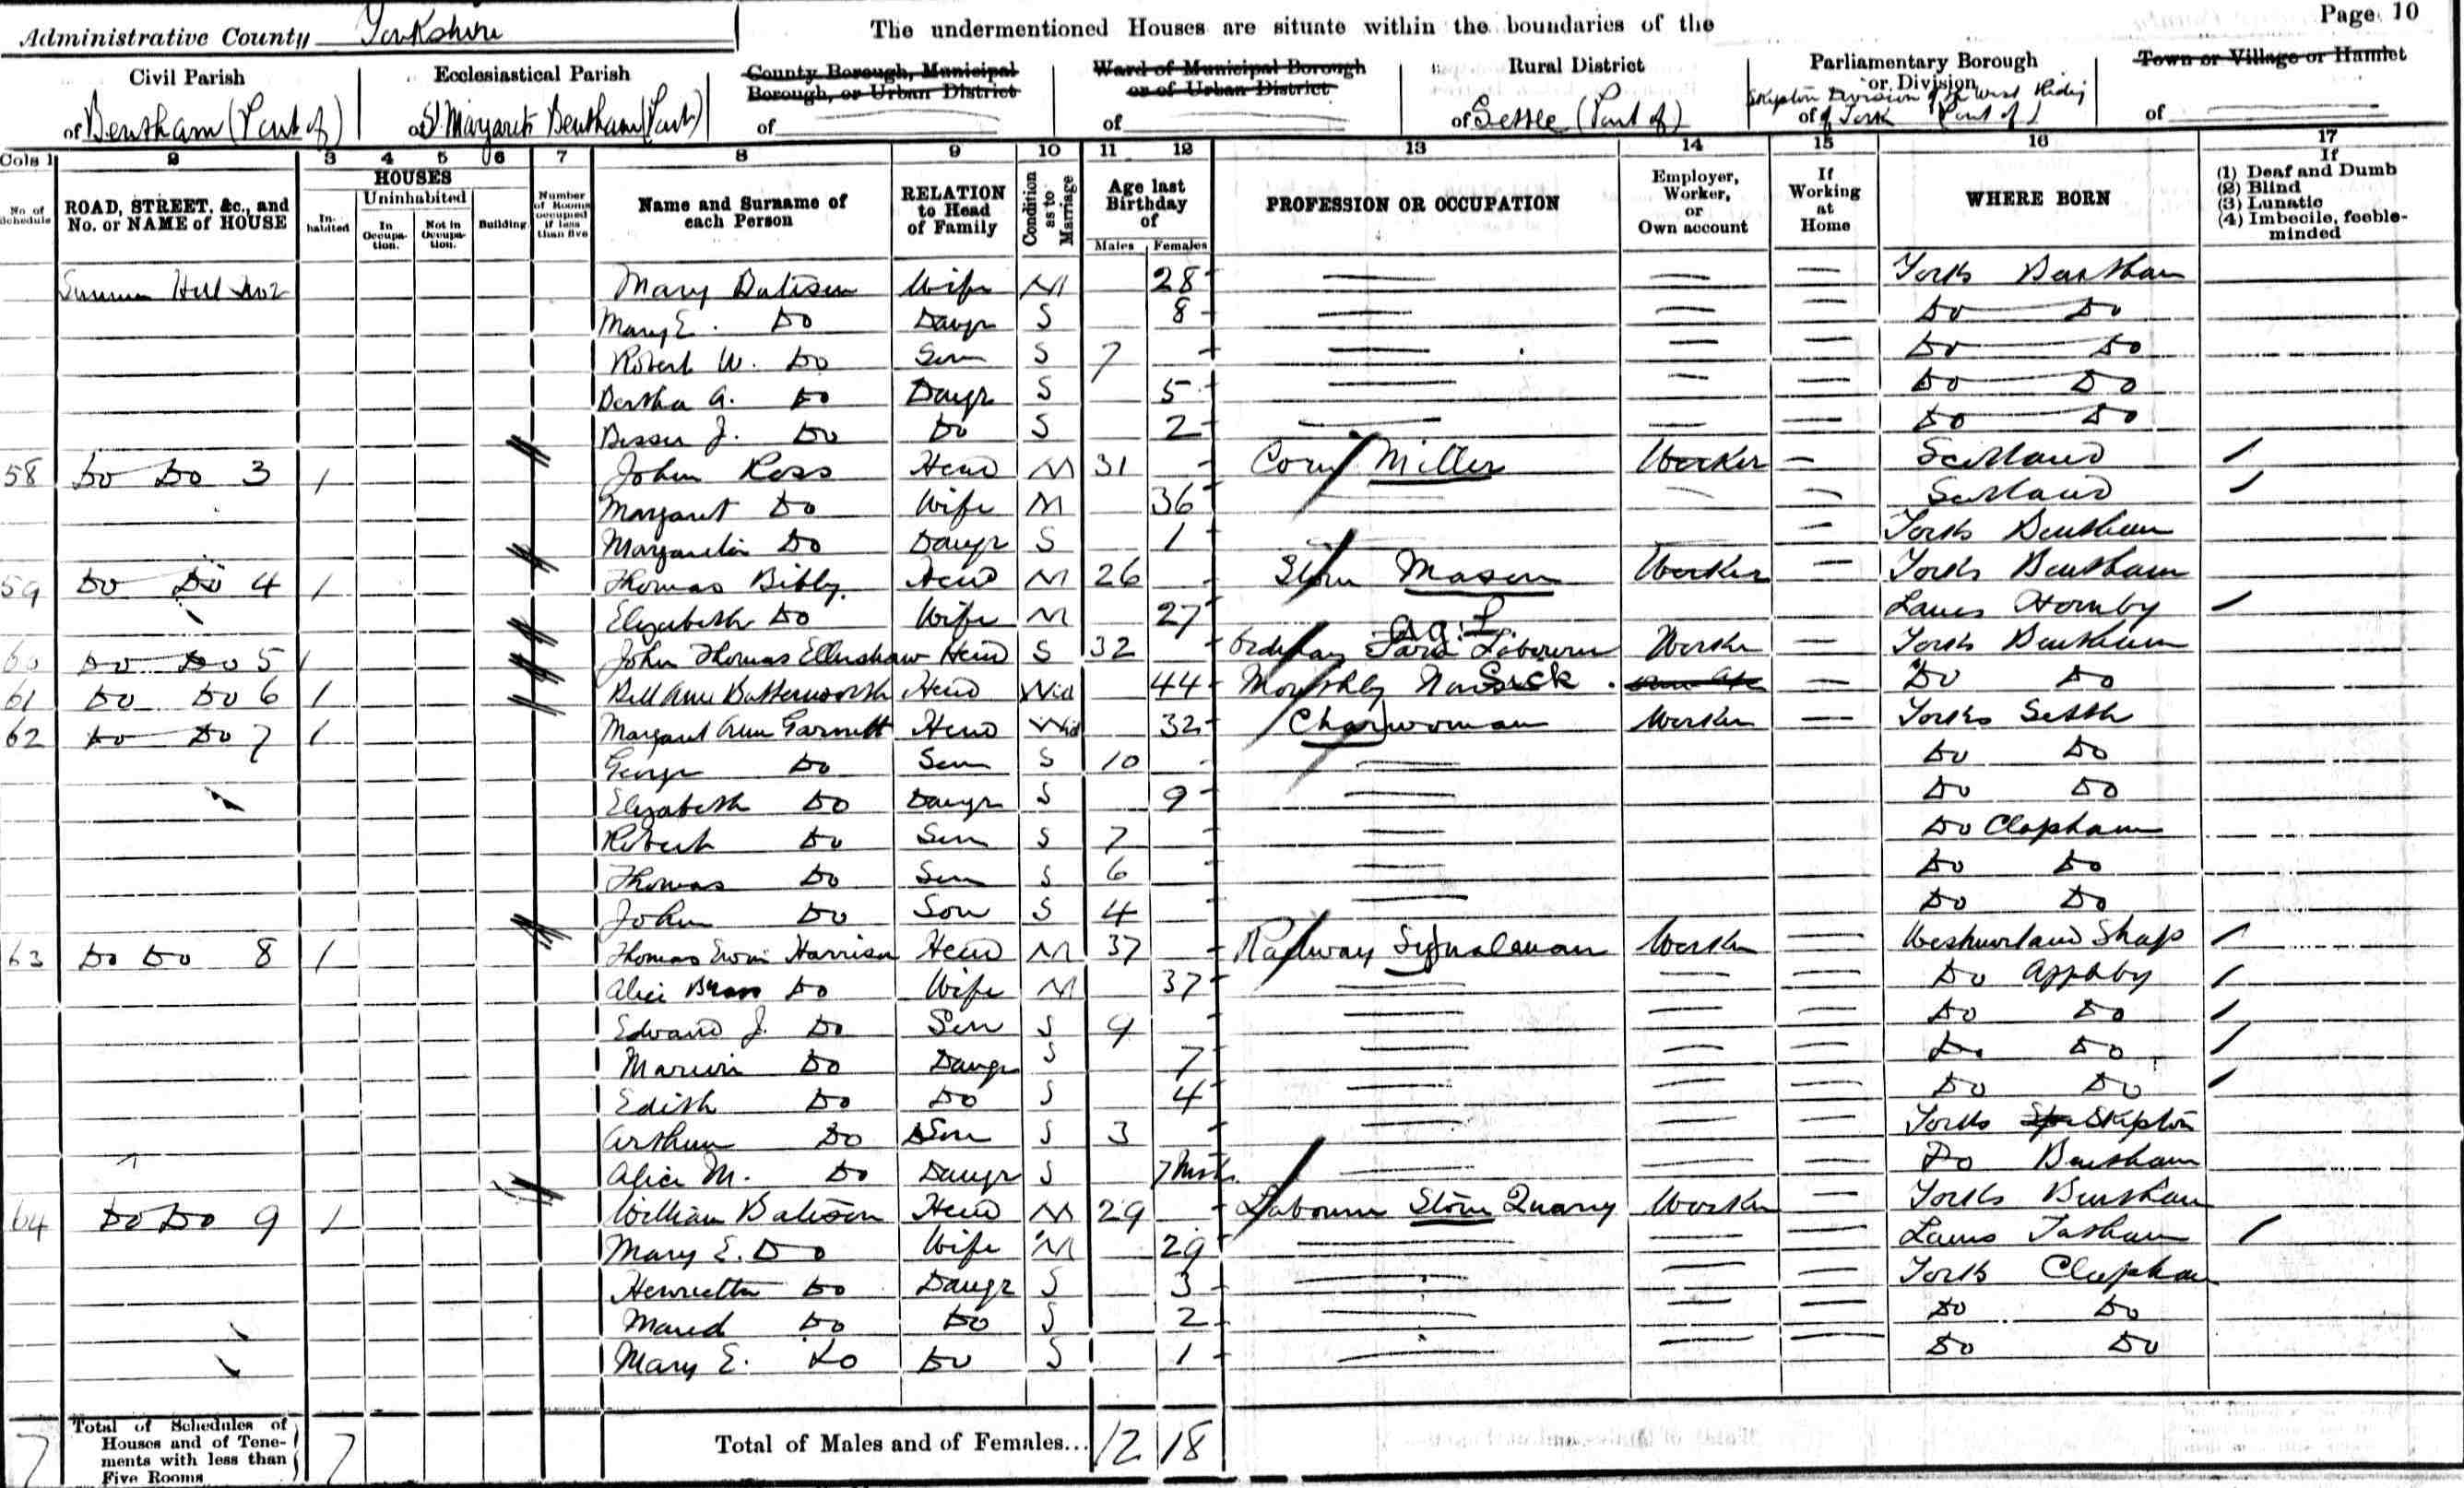 Page 10
Administrative County Yorkshire
The undermentioned Houses are situate within the boundaries of the
Civil Parish
of Bentham (Part of)
Ecclesiastical Parish
of St Margarets Bentham (Part)
County Borough, Municipal Borough, or Urban District
of
Ward of Municipal Borough or of Urban District
of
Rural District
of Settle (Part of)
Parliamentary Borough or Division
of Skipton Division of the West Riding of York (Part of)
Town or Village or Hamlet
of
Cols 1 2 3 4 5 6 7 8 9 10 11 12 13 14 15 16 17
No of Schedule
ROAD, STREET, &c., and No. or NAME of HOUSE
HOUSES
In-habited
Uninhabited
In Occupa-tion.
Not in Occupa-tion.
Building
Number of Rooms occupied if less than five
Name and Surname of each Person
RELATION to Head of Family
Condition as to Marriage
Age last Birthday of
Males Females
PROFESSION OR OCCUPATION
Employer, Worker, or Own account
If Working at Home
WHERE BORN
If
(1) Deaf and Dumb
(2) Blind
(3) Lunatic
(4) Imbecile, feeble-minded
Summer Hill No 2 Mary Bateson Wife M 28 Yorks Bentham
Mary E. Do Daugr S 8 Do Do
Robert W. Do Son S 7 Do Do
Bertha A. Do Daugr S 5 Do Do
Bessie J. Do Do S 2 Do Do
58 Do Do 3 1 John Ross Head M 31 Corn Miller Worker Scotland
Margaret Do Wife M 36 Scotland
Do Daugr S 1 Yorks Bentham
59 Do Do 4 1 Thomas Bibby. Head M 26 Stone Mason Worker Yorks Bentham
Elizabeth Do Wife M 27 Lancs Hornby
Ag: L.
60 Do Do 5 1 John Thomas Ellershaw Head S 32 Ordinary Farm Labourer Worker Yorks Bentham
61 Do Do 6 1 Ann Butterworth Head Wid 44 Monthly Sick Do Do
62 Do Do 7 1 Margaret Ann Garnett Head Wid 32 Charwoman Worker Yorks Settle
George Do Son S 10 Do Do
Elizabeth Do Daugr S 9 Do Do
Robert Do Son S 7 Do Clapham
Thomas Do Son S 6 Do Do
John Do Son S 4 Do Do
63 Do Do 8 1 Thomas Harrison Head M 37 Railway Signalman Worker Westmorland Shap
Alice Do Wife M 37 Do Appleby
Edward J. Do Son S 9 Do Do
Do Daugr S 7 Do Do
Edith Do Do S 4 Do Do
Arthur Do Son S 3 Yorks Skipton
Alice M. Do Daugr S 7 Mths Do Bentham
64 Do Do 9 1 William Bateson Head M 29 Labourer Stone Quarry Worker Yorks Bentham
Mary E. Do Wife M 29 Lancs Tatham
Henrietta Do Daugr S 3 Yorks Clapham
Maud Do Do S 2 Do Do
Mary E. Do Do S 1 Do Do
7 Total of Schedules of Houses and of Tene-ments with less than Five Rooms 7
Total of Males and of Females... 12 18